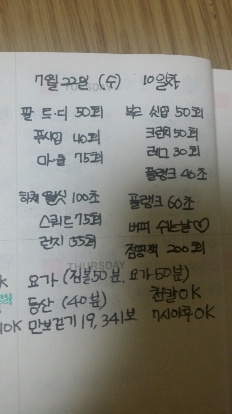 7월 22일 (수) 10일차
팔 트·디 50회
푸시업 40회
마·클 75회
하체 월싯 100초
스쿼트 75회
런지 55회
복근 싯업 50회
크런치 50회
레그 30회
플랭크 40초
플랭크 60초
버피 쉬는날♡
점핑잭 200회
THURSDAY
요가 (짐볼50분, 요가 60분)
등산 (40분)
만보걷기 19,341보
전갈OK
7시이후OK